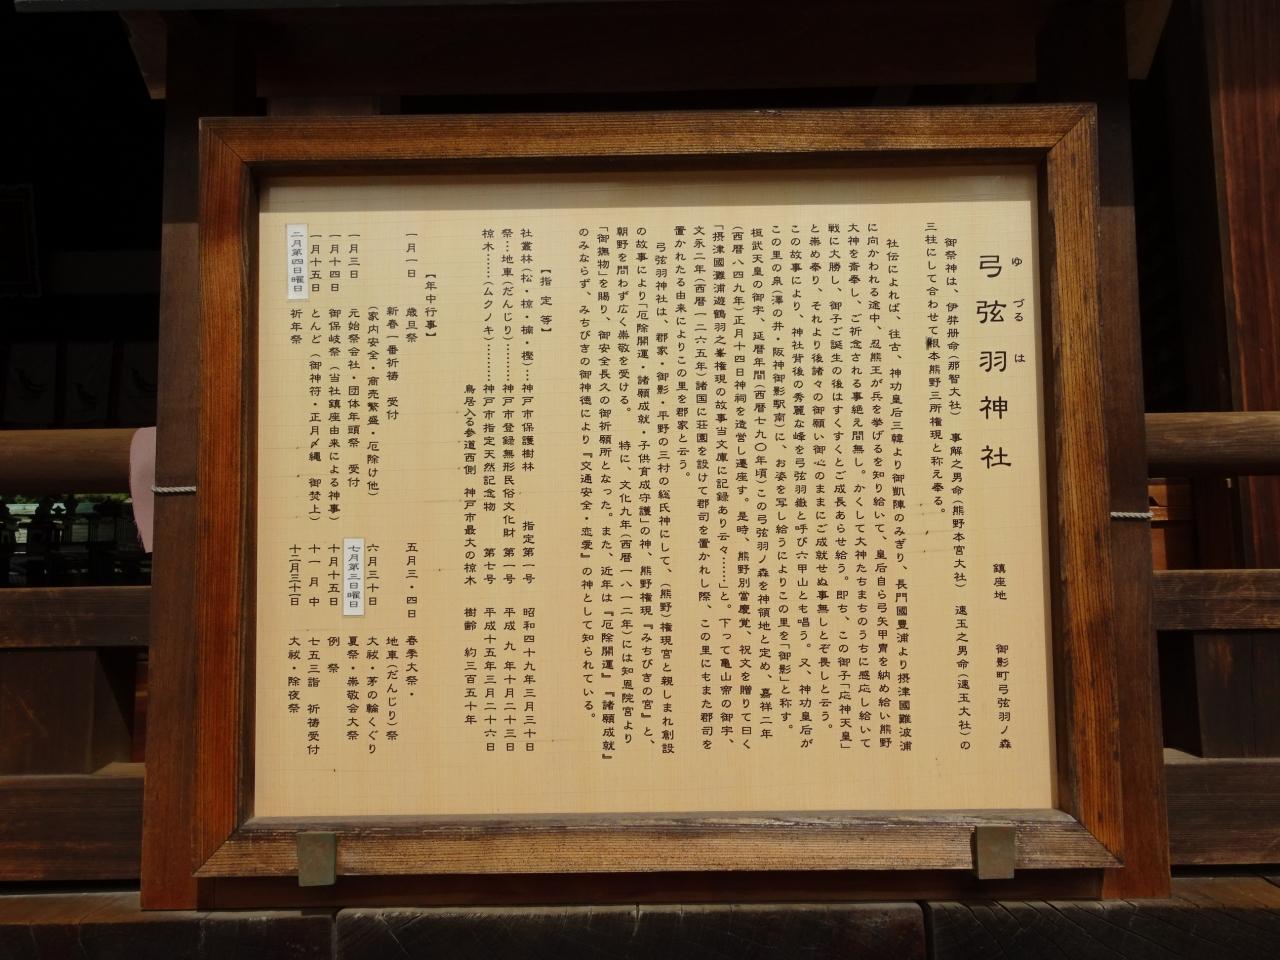 弓弦羽神社
ゆづるは
鎮座地　御影町弓弦羽ノ森
御祭神は、伊弉册命（那智大社）　事解之男命（熊野本宮大社）　速玉之男命（速玉大社）の
三柱にして合わせて根本熊野三所権現と称え奉る。
社伝によれば、往古、神功皇后三韓より御凱陣のみぎり、長門國豊浦より摂津國難波浦
に向かわれる途中、忍熊王が兵を挙げるを知り給いて、皇后自ら弓矢甲冑を納め給い熊野
大神を斎奉し、ご祈念される事絶え間無し。かくして大神たちまちのうちに感応し給いて
戦に大勝し、御子ご誕生の後はすくすくとご成長あらせ給う。即ち、この御子「応神天皇」
と崇め奉り、それより後諸々の御願い御心のままにご成就せぬ事無しとぞ畏しと云う。
この故事により、神社背後の秀麗な峰を弓弦羽嶽と呼び六甲山とも唱う。又、神功皇后が
この里の泉（澤の井・阪神御影駅南）に、お姿を写し給うによりこの里を「御影」と称す。
桓武天皇の御宇、延暦年間（西暦七九〇年頃）この弓弦羽ノ森を神領地と定め、嘉祥二年
（西暦八四九年）正月十四日神祠を造営し遷座す。是時、熊野別當慶覚、祝文を贈りて曰く
「摂津國灘浦遊鶴羽之峯権現の故事当文庫に記録あり云々……」と。下って亀山帝の御宇、
文永二年（西暦一二六五年）諸国に荘園を設けて郡司を置かれし際、この里にもまた郡司を
置かれたる由来によりこの里を郡家と云う。
弓弦羽神社は、郡家・御影・平野の三村の総氏神にして、（熊野）権現宮と親しまれ創設
の故事により「厄除開運・諸願成就・子供育成守護」の神、熊野権現『みちびきの宮』と、
朝野を問わず広く崇敬を受ける。　特に、文化九年（西暦一八一二年）には知恩院宮より
「御撫物」を賜り、御安全長久の御祈願所となった。また、近年は『厄除開運』『諸願成就』
のみならず、みちびきの御神徳により『交通安全・恋愛』の神として知られている。
【指定等】
社叢林（松・椋・楠・樫）…神戸市保護樹林　指定第一号　昭和四十九年三月三十日
祭…地車（だんじり）………神戸市登録無形民俗文化財　第一号　平成九年十月二十三日
椋木……（ムクノキ）………神戸市指定天然記念物　第七号　平成十五年三月二十六日
鳥居入る参道西側　神戸市最大の椋木　樹齢　約三百五十年
【年中行事】
一月一日　歳旦祭
新春一番祈祷　受付
（家内安全・商売繁盛・厄除け他）
一月三日　元始祭会社・団体年頭祭　受付
一月十四日　御保岐祭（当社鎮座由来による神事）
一月十五日　とんど（御神符・正月〆縄　御焚上）
二月第四日曜日　祈年祭
五月三・四日　春季大祭・
地車（だんじり）祭
六月三十日　大祓・茅の輪くぐり
七月第三日曜日　夏祭・崇敬会大祭
十月十五日　例祭
十一月中　七五三詣　祈祷受付
十二月三十一日　大祓・除夜祭